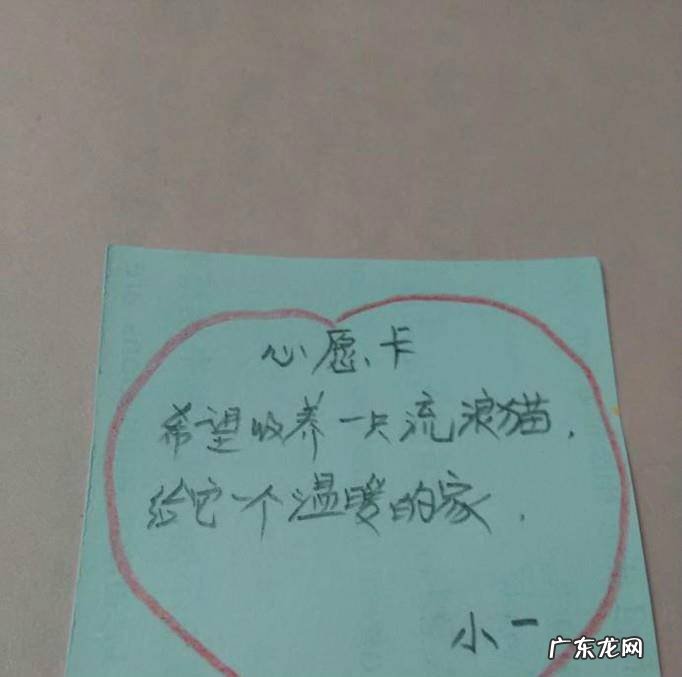 心愿卡
希望收养一只流浪猫,
给它一个温暖的家.
小一
广东龙网